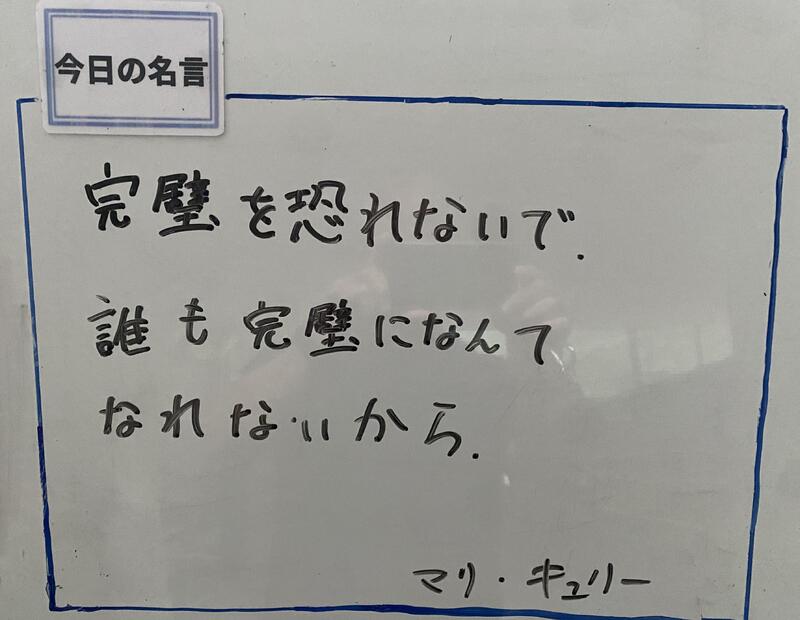 今日の名言
完璧を恐れないで.
誰も完璧になんて
なれないから.
マリ・キュリー